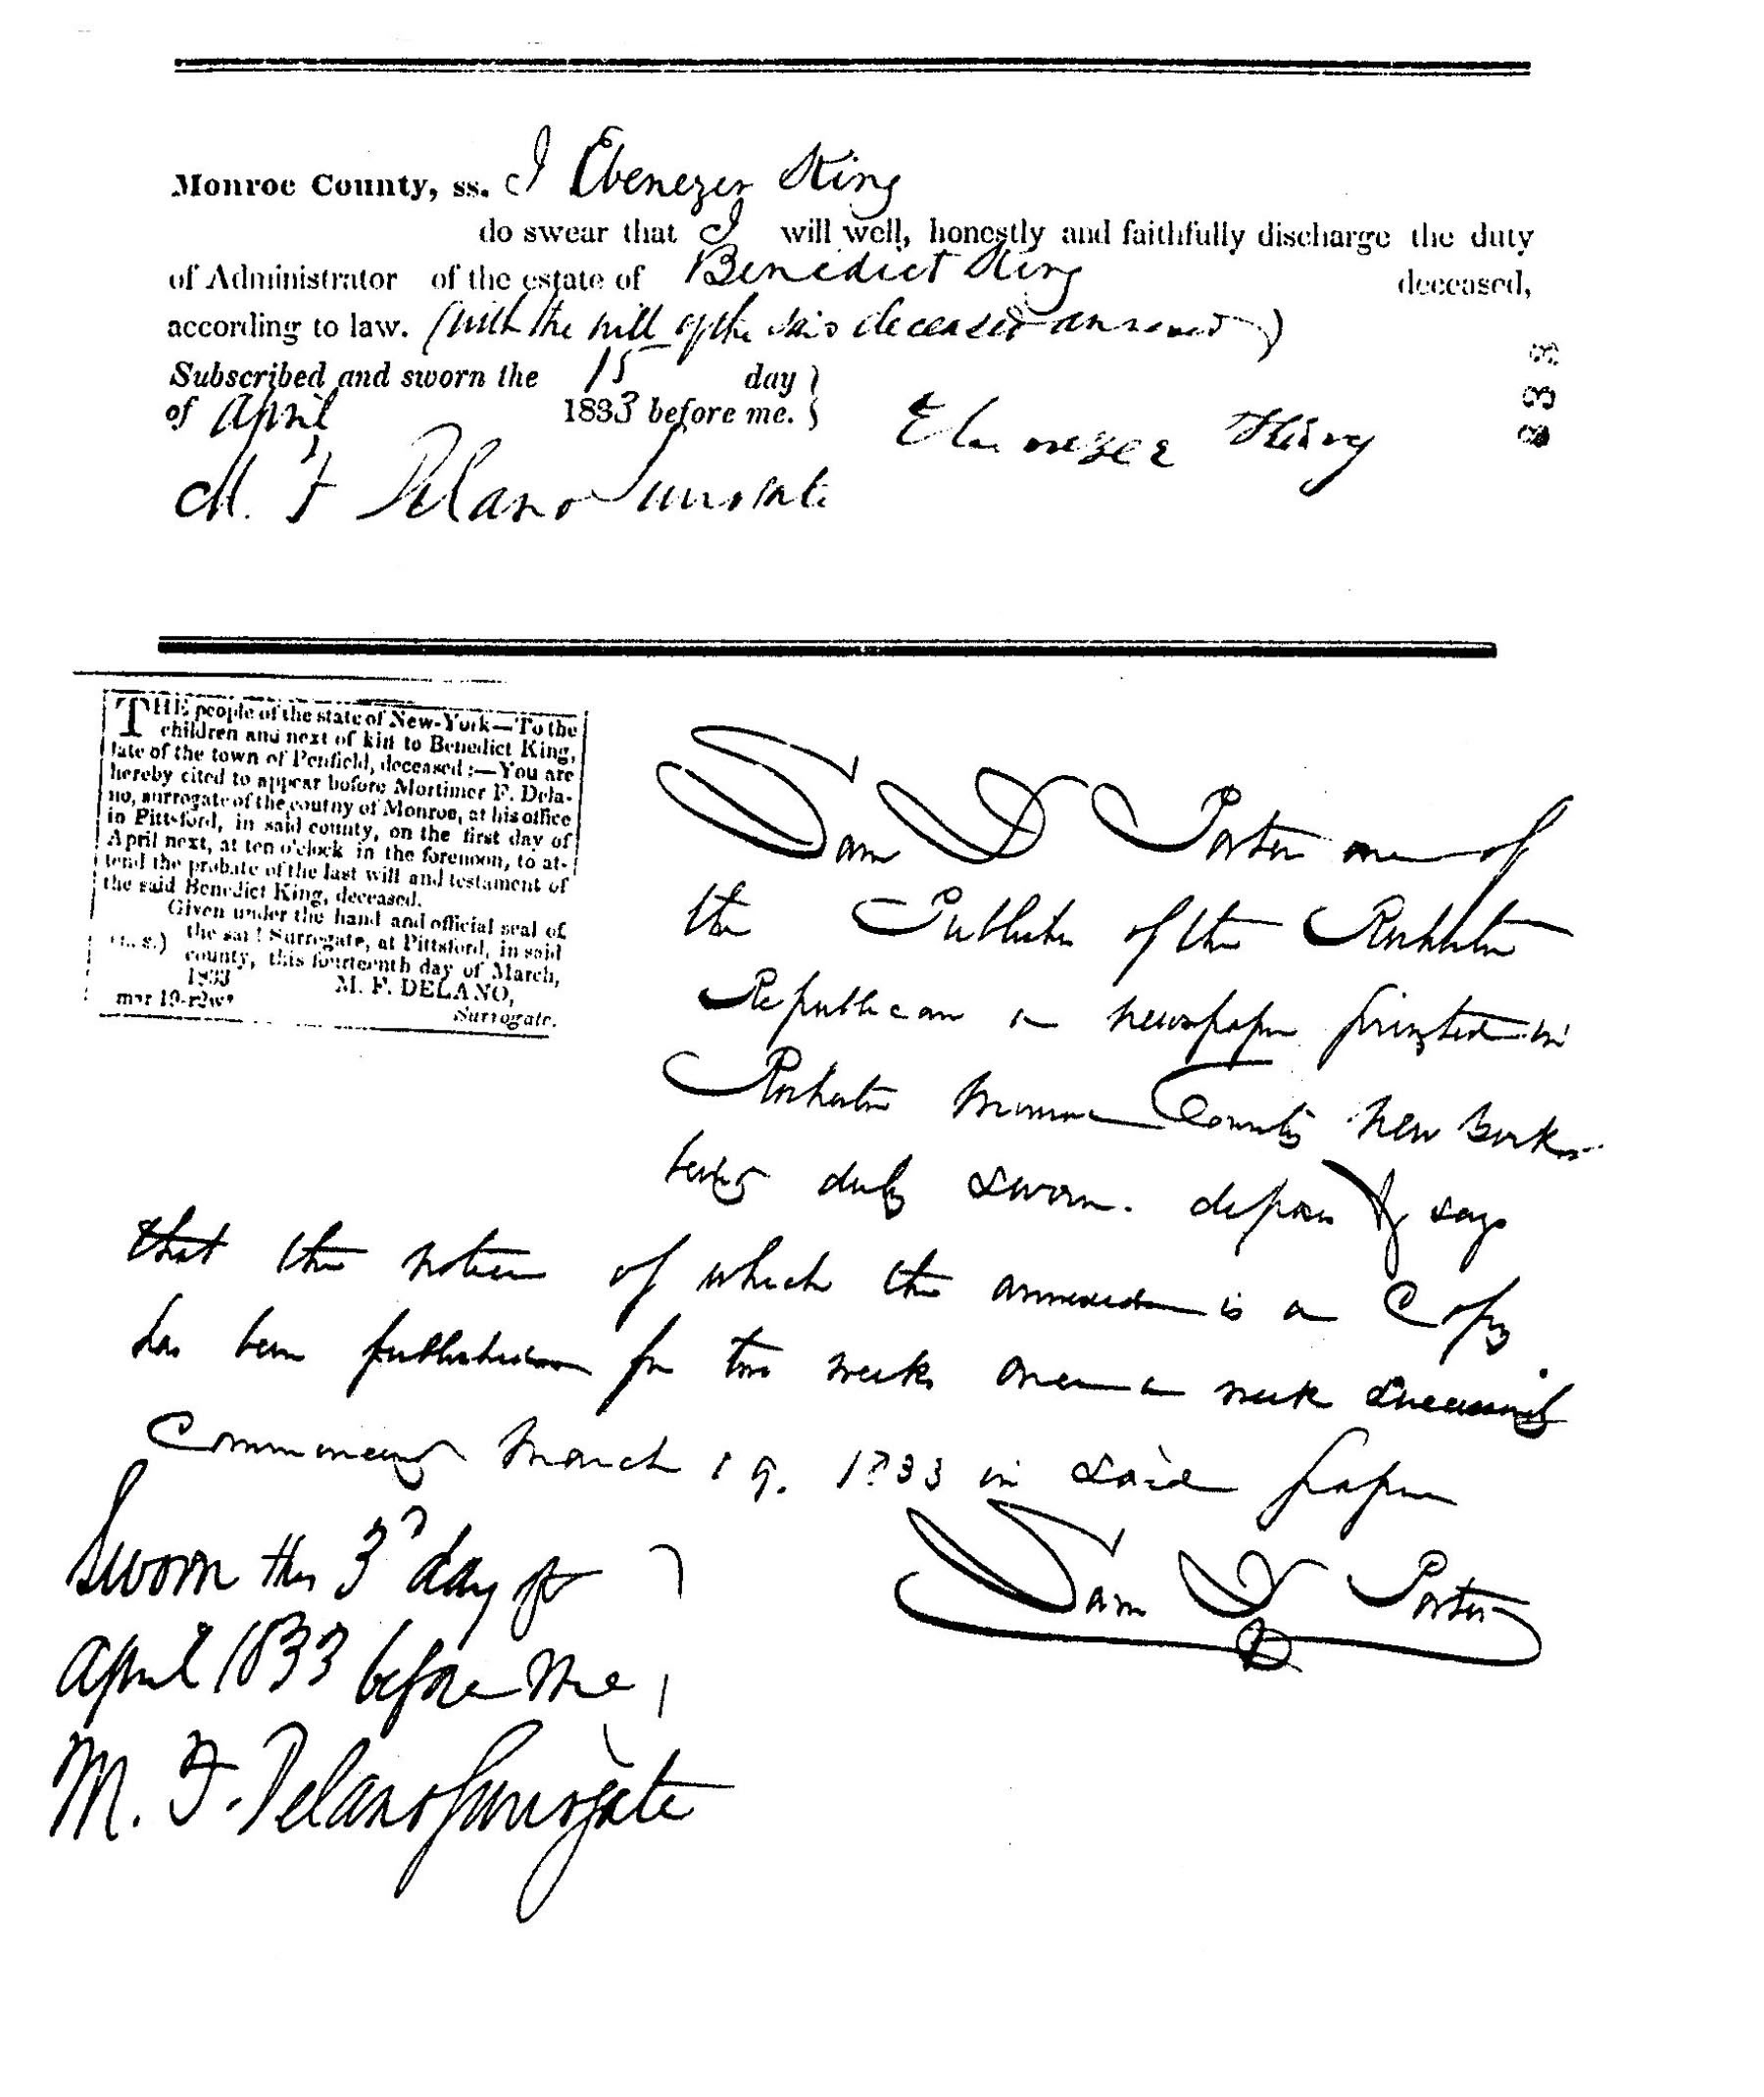 Monroe County, ss. I Ebenezer King
do swear that I will well, honestly and faithfully discharge the duty
of Administrator of the estate of Benedict King deceased,
according to law. (with the will of the said deceased annexed)
Subscribed and sworn the 15 day
of April 1833 before me.
Ebenezer King
M. F Delano Surrogate
833
THE people of the state of New-York—To the
children and next of kin to Benedict King,
late of the town of Penfield, deceased:—You are
hereby cited to appear before Mortimer F. Dela-
no, surrogate of the coutny of Monroe, at his office
in Pittsford, in said county, on the first day of
April next, at ten o'clock in the forenoon, to at-
tend the probate of the last will and testament of
the said Benedict King, deceased.
Given under the hand and official seal of
(L.S.) the said Surrogate, at Pittsford, in said
county, this fourteenth day of March,
1833 M. F. DELANO,
mar 19-r2w* Surrogate.
Sam D Porter one of
the Publisher of the Rochester
Republican a newspaper printed in
Rochester Monroe County New York
being duly sworn. deposes & says
that the notice of which the annexed is a Copy
has been published for two weeks once a week successively
Commencing March 19. 1833 in said paper
Sam D Porter
Sworn this 3d day of
April 1833 before me
M. F. Delano Surrogate